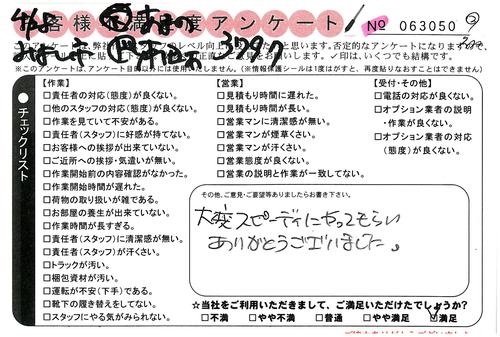 お客様不満足度アンケート
№ 063050
チェックリスト
【作業】
□責任者の対応(態度)が良くない。
□他のスタッフの対応(態度)が良くない。
□作業を見ていて不安がある。
□責任者(スタッフ)に好感が持てない。
□お客様への挨拶が出来ていない。
□ご近所への挨拶・気遣いが無い。
□作業開始前の内容確認がなかった。
□作業開始時間が遅れた。
□荷物の取り扱いが雑である。
□お部屋の養生が出来ていない。
□作業時間が長すぎる。
□責任者(スタッフ)に清潔感が無い。
□責任者(スタッフ)が汗くさい。
□トラックが汚い。
□梱包資材が汚い。
□運転が不安(下手)である。
□靴下の履き替えをしてない。
□スタッフにやる気がみられない。
【営業】
□見積もり時間に遅れた。
□見積もり時間が長い。
□営業マンに清潔感が無い。
□営業マンが煙草くさい。
□営業マンが汗くさい。
□営業態度が良くない。
□営業の説明と作業が一致してない。
【受付・その他】
□電話の対応が良くない。
□オプション業者の説明
・作業が良くない。
□オプション業者の対応
(態度)が良くない。
その他、ご意見・ご要望等ありましたらお書き下さい。
大変スピーディにやってもらい
ありがとうございました。
☆当社をご利用いただきまして、ご満足いただけたでしょうか?
□不満 □やや不満 □普通 □やや満足 ☑満足